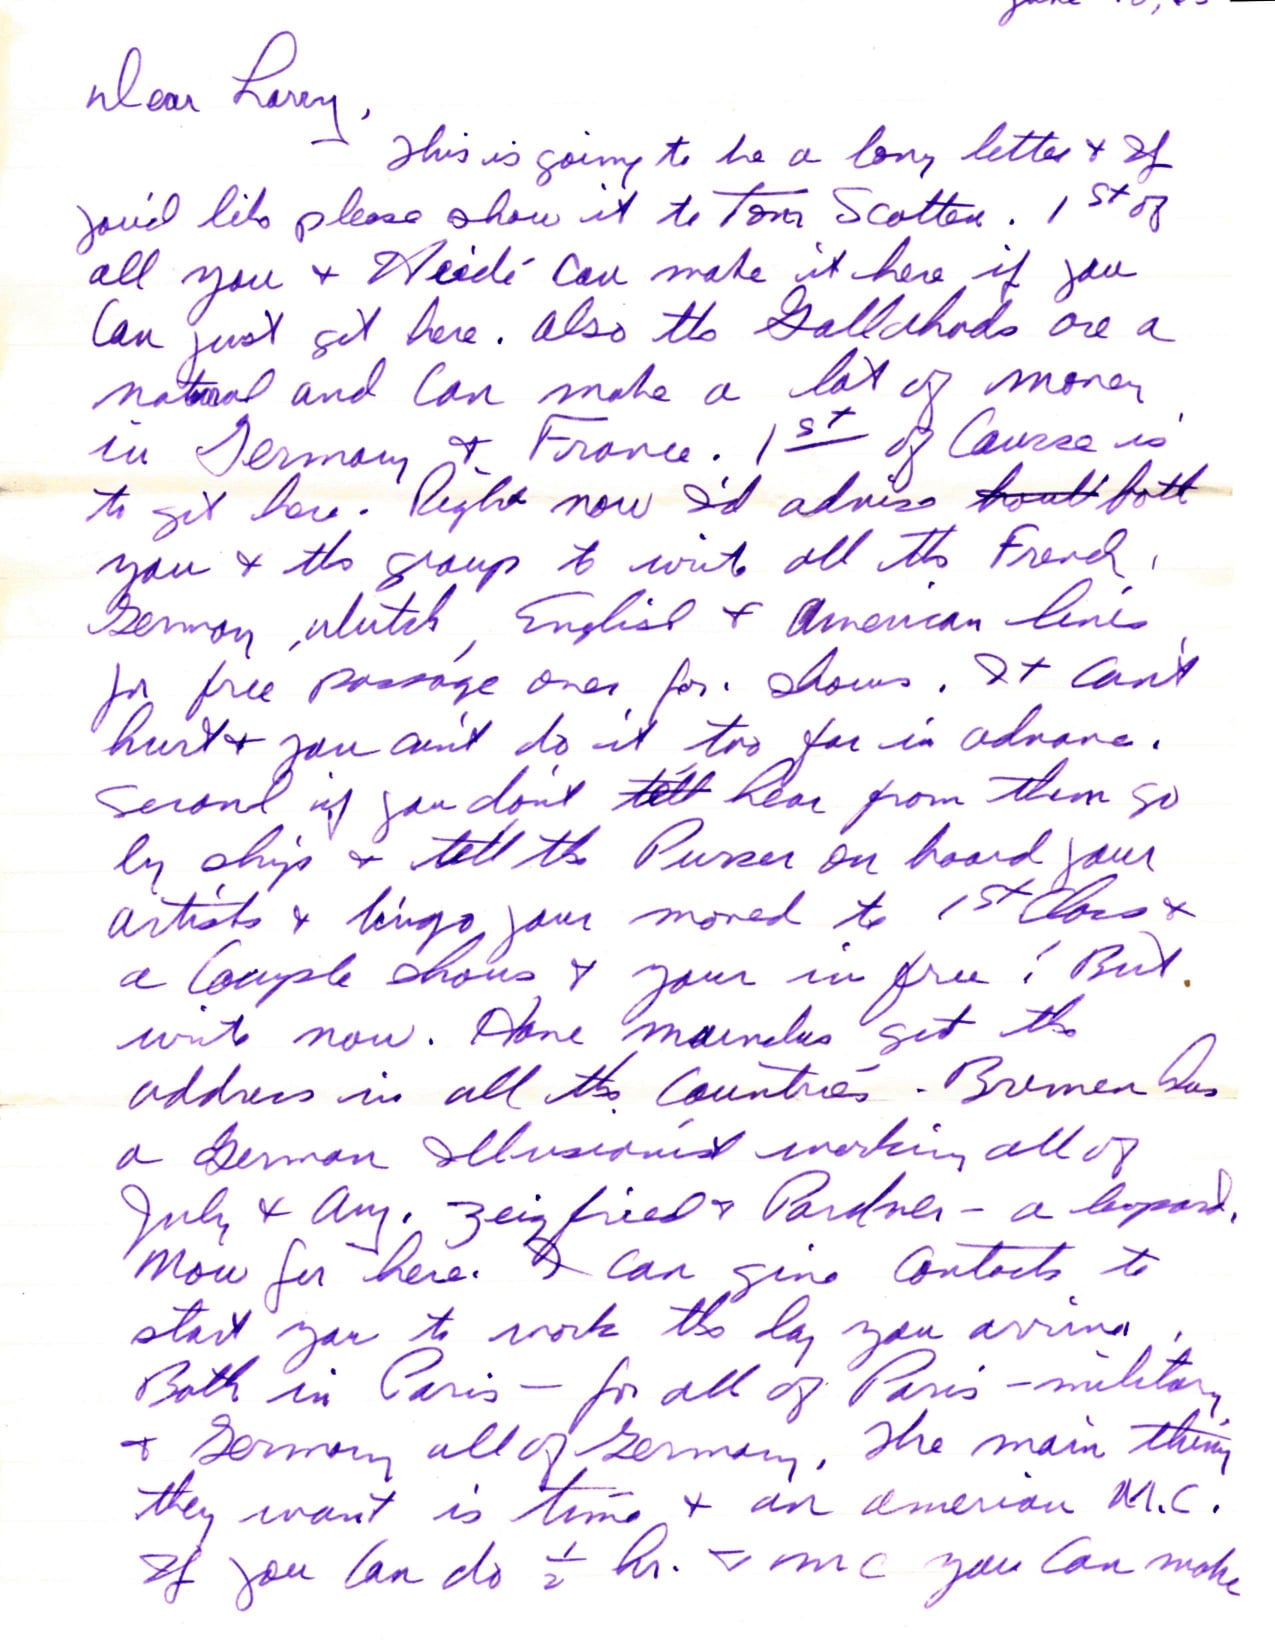 Dear Larry,
This is going to be a long letter & If
you'd like please show it to Tom Scotten. 1st of
all you & can make it here if you
can just get here. Also the are a
natural and can make a lot of money
in Germany & France. 1st of Course is
to get here. Right now I'd advise both
you & the group to write all the French,
German, Dutch, English & American lines
for free passage over for shows. It can't
hurt & you can't do it too far in advance.
Second if you don't tell hear from them go
by ship & tell the Purser on board your
artists & bingo your moved to 1st Class &
a couple shows & your in free! But
write now. Have get the
address in all the Countries. Bremen has
a German Illusionist working all of
July & Aug. Zeigfried & Pardner - a leopard.
Now for here. I can give contacts to
start you to work the day you arrive.
Both in Paris - for all of Paris - military
& Germany all of Germany. The main thing
they want is time & an amerian M.C.
If you can do ½ hr. & mc you can make